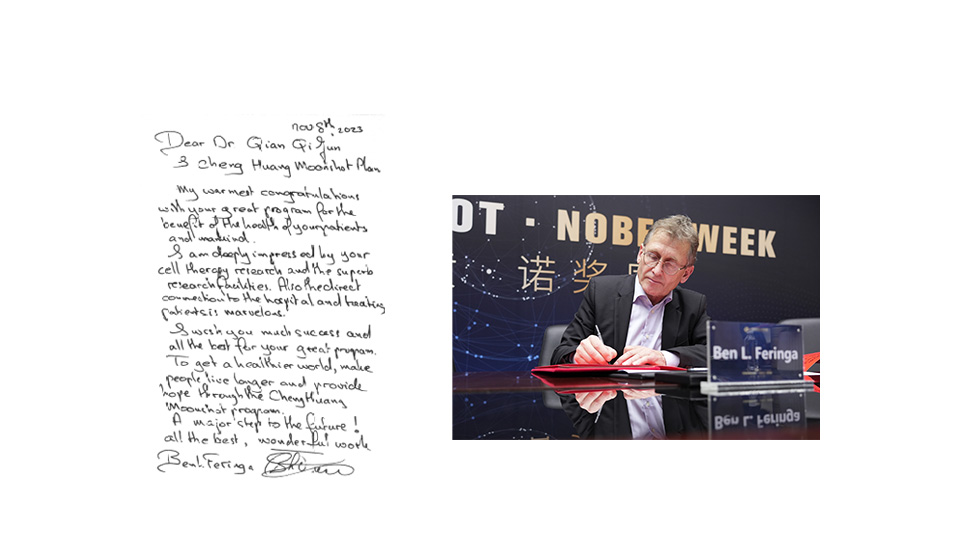 nov 8th 2023
Dear Dr Qian Qi Jun
& Cheng Huang Moonshot Plan
My warmest congratulations
with your great program for the
benefit of the health of your patients
and mankind.
I am deeply impressed by your
cell therapy research and the superb
research facilities. Also the direct
connection to the hospital and treating
patients is marvelous.
I wish you much success and
all the best for your great program.
To get a healthier world, make
people live longer and provide
hope through the Cheng Huang
Moonshot program.
A major step to the future!
all the best, wonderful work
Ben L. Feringa
OT · NOBEL WEEK
诺 奖
Ben L. Feringa
Ben L. Feringa